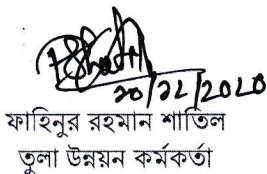 ২০/১২/২০২০
ফাহিনুর রহমান শাতিল
তুলা উন্নয়ন কর্মকর্তা